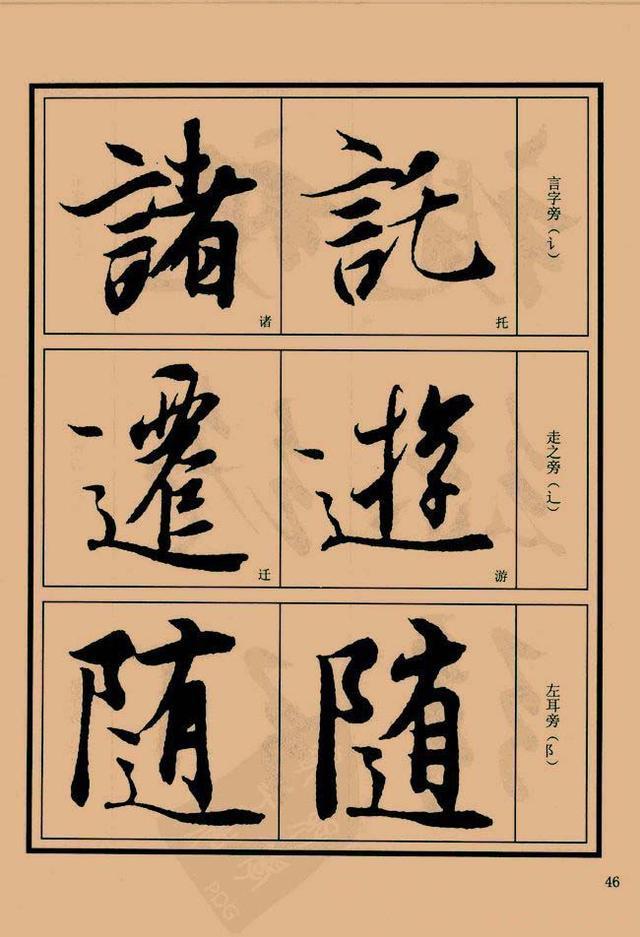 言字旁（讠）
託
托
諸
诸
走之旁（辶）
遊
游
遷
迁
左耳旁（阝）
随
随
46
PDG